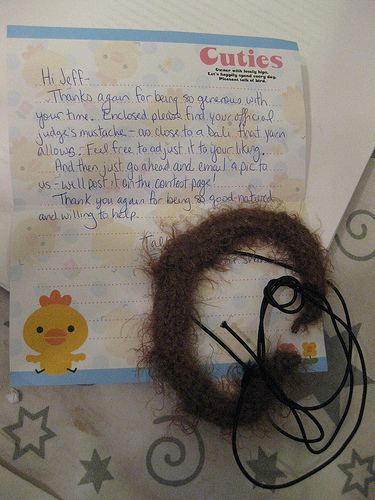 Cuties
Owner with lovely hips.
Let's happily spend every day.
Pleasant talk of bird.
Hi Jeff-
Thanks again for being so generous with
your time. Enclosed please find your official
judge's mustache - as close to a dali that yarn
allows. Feel free to adjust it to your liking.
And then just go ahead and email a pic to
us - we'll post it on the contest page!
Thank you again for being so good natured
and willing to help.